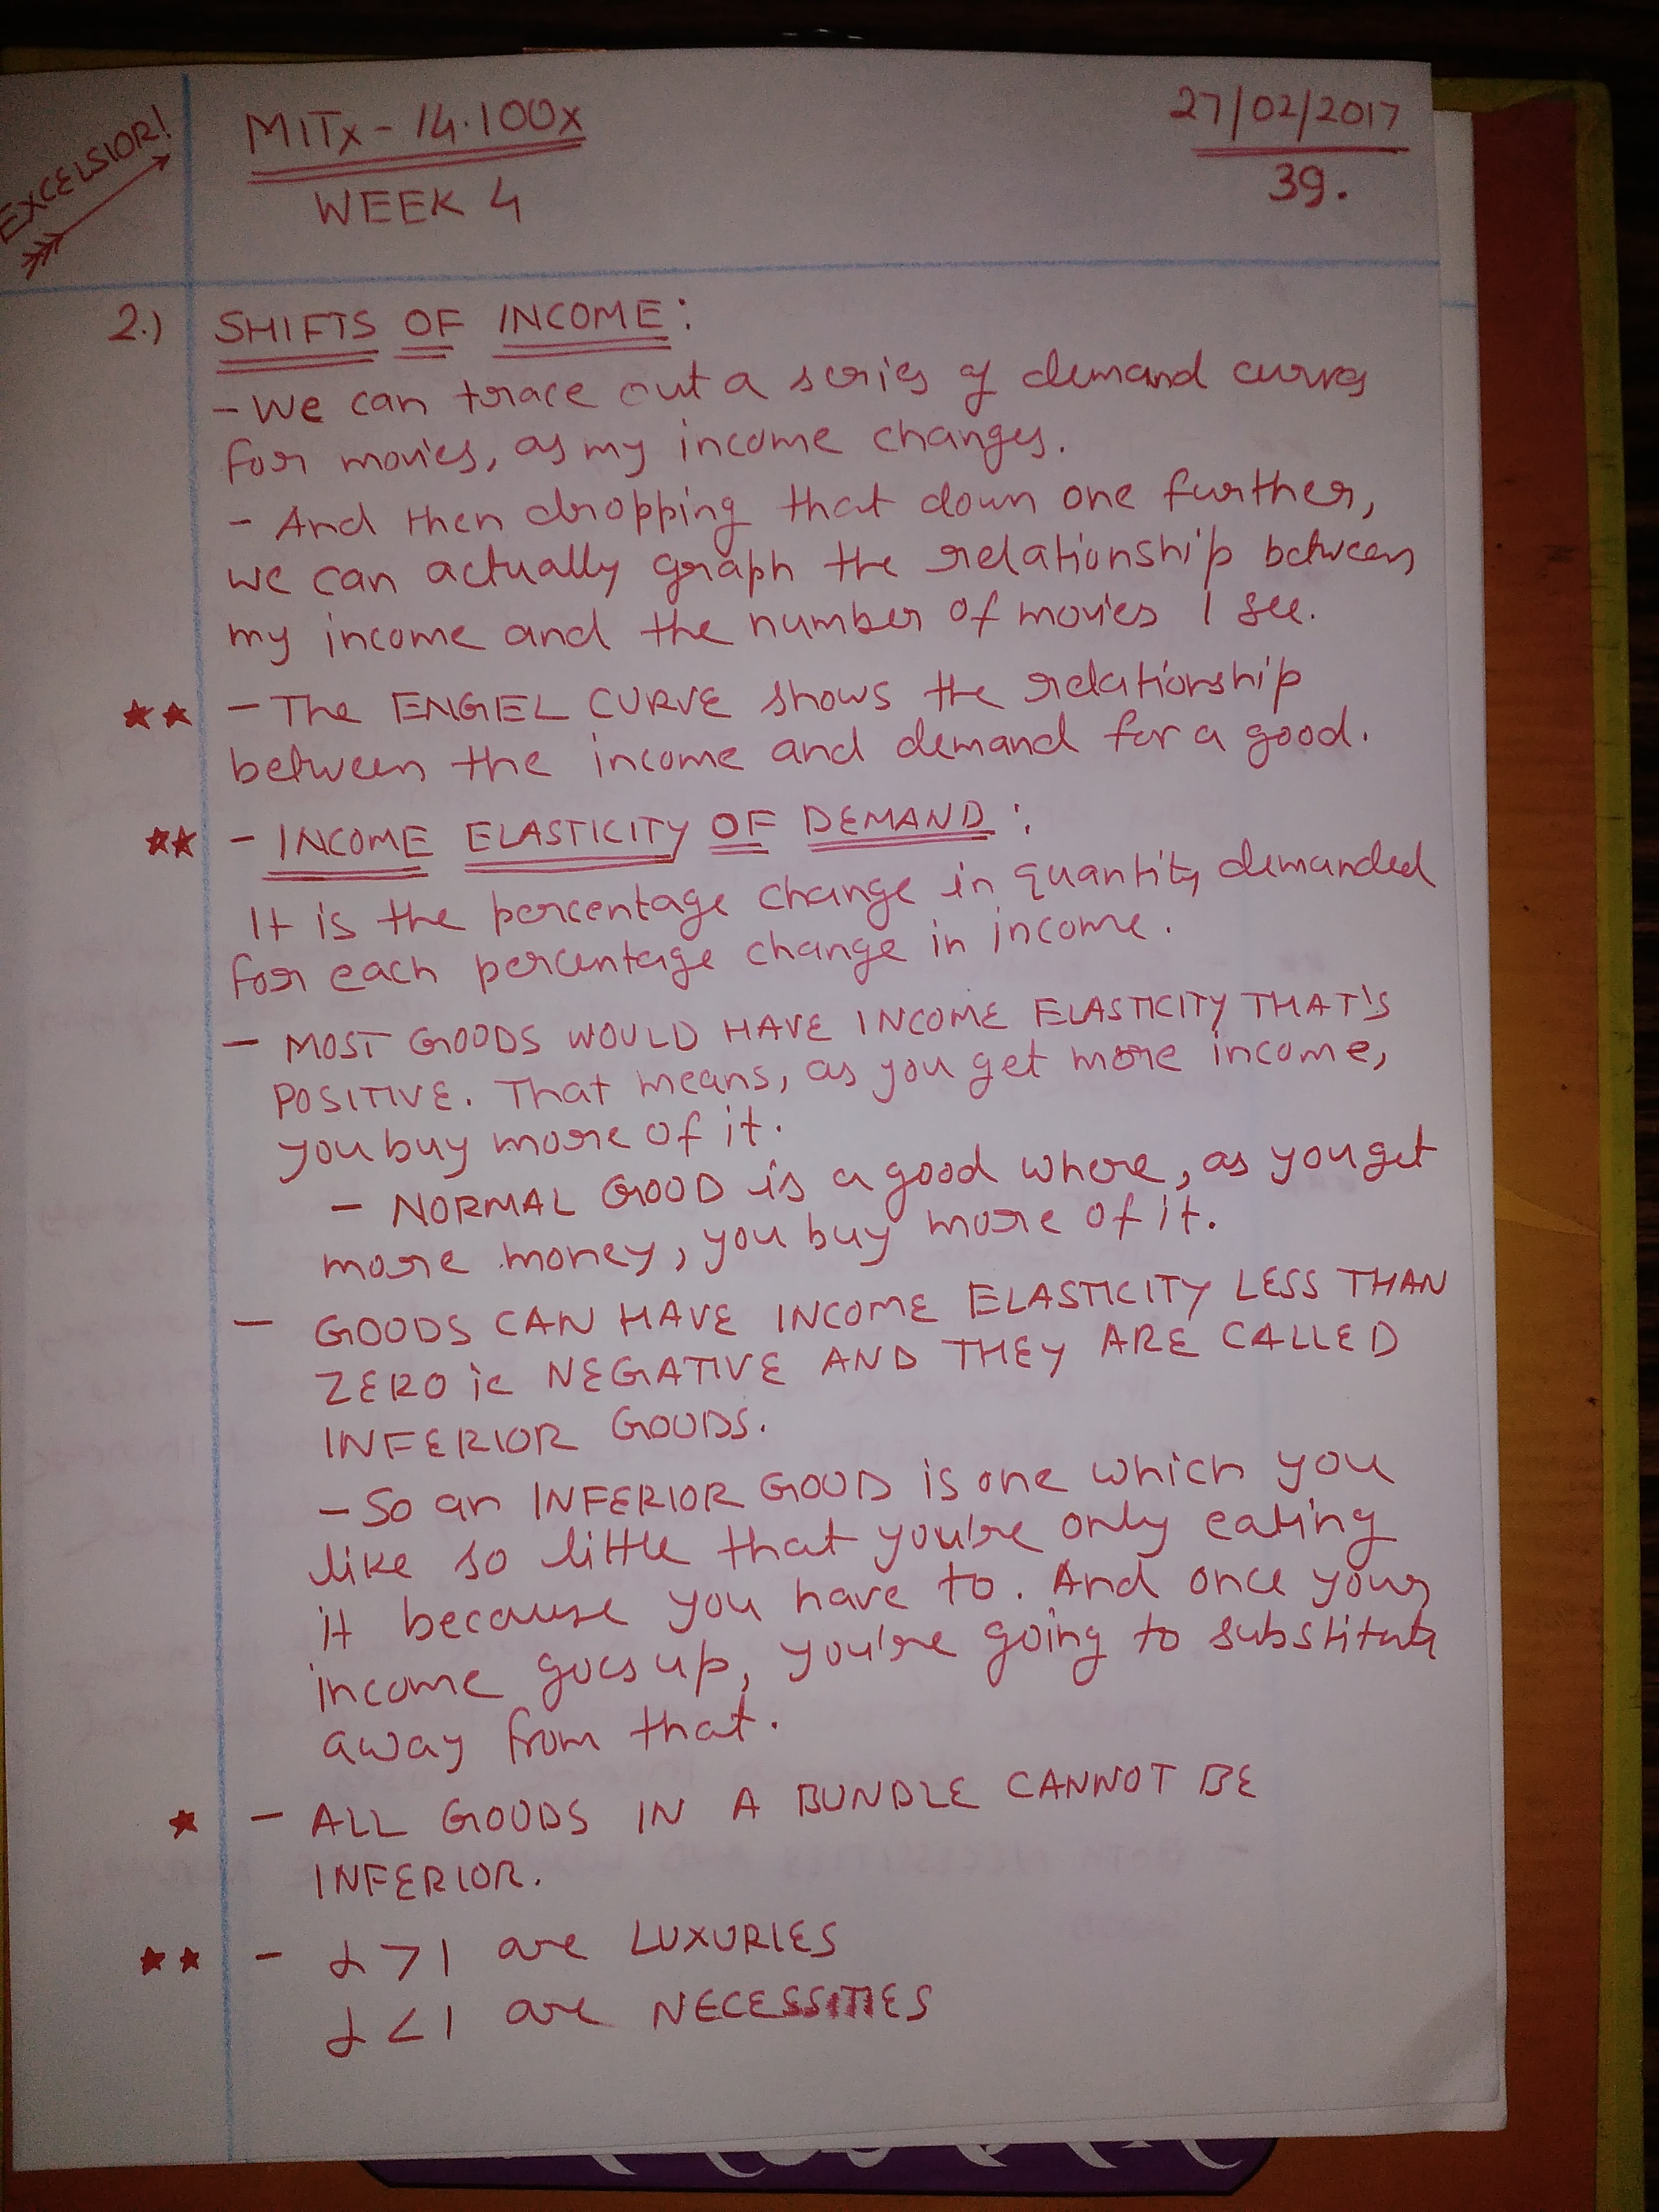 EXCELSIOR!
MITx - 14.100x
WEEK 4
27/02/2017
39.
2.) SHIFTS OF INCOME:
- We can trace out a series of demand curves
for movies, as my income changes.
- And then dropping that down one further,
we can actually graph the relationship between
my income and the number of movies I see.
★★ - The ENGEL CURVE shows the relationship
between the income and demand for a good.
★★ - INCOME ELASTICITY OF DEMAND:
It is the percentage change in quantity demanded
for each percentage change in income.
- MOST GOODS WOULD HAVE INCOME ELASTICITY THAT'S
POSITIVE. That means, as you get more income,
you buy more of it.
- NORMAL GOOD is a good where, as you get
more money, you buy more of it.
- GOODS CAN HAVE INCOME ELASTICITY LESS THAN
ZERO ie NEGATIVE AND THEY ARE CALLED
INFERIOR GOODS.
- So an INFERIOR GOOD is one which you
like so little that you're only eating
it because you have to. And once your
income goes up, you're going to substitute
away from that.
★ - ALL GOODS IN A BUNDLE CANNOT BE
INFERIOR.
★★ - α > 1 are LUXURIES
α < 1 are NECESSITIES